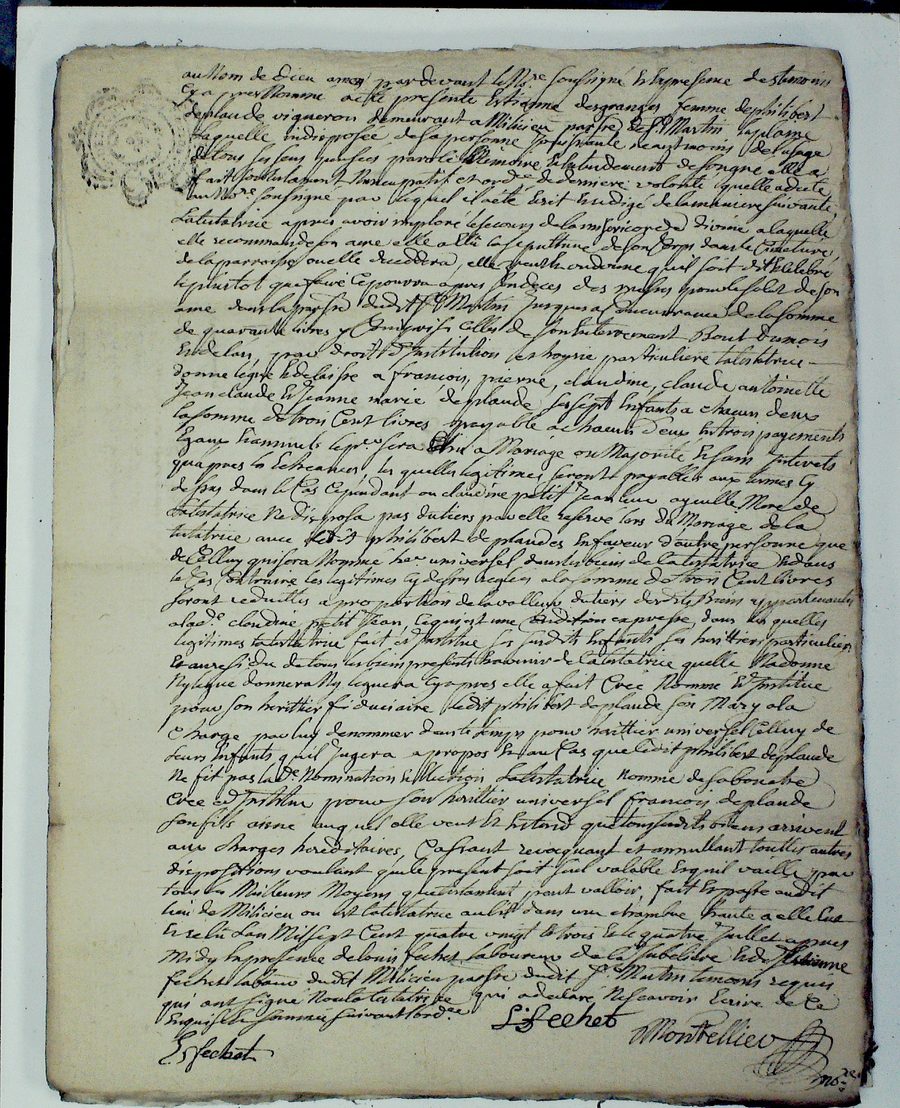 au Nom de Dieu amen pardevant le No.re soussigné et en presence des temoins
cy apres Nommé a été presente Estienne desgranges femme de philibert
deplaude vigneron demeurant a Milicieu parsse de St Martin la plaine
laquelle indisposée de sa personne jouissante neantmoins de l'usage
de tous ses sens pensées parolle Memoire Entendement de son gré elle a
fait son testament Nuncupatif et ord.re de derniere volonté quelle a dicté
au No.re soussigné par lequel il a eté Ecrit Redigé de la maniere suivante
La testatrice apres avoir imploré le secours de la misericorde divine a laquelle
elle recommande son ame elle a élu la sepulture de son Corps dans le Cimetiere
de la parroisse ou elle decedera, elle veut et ordonne quil soit dit et celebré
le plustot que faire se pourra apres son deces des messes pour le salut de son
ame dans la parsse dud. St Martin jusques a Concurrance de la somme
de quarante livres y Compris Celles de son Enterrement Bout du mois
Et de lan, par droit d'Institution et hoyrie particuliere la testatrice
donne legue et delaisse a francois, pierre, claudine, claude antoinette
Jean claude et jeanne marie deplaude ses sept Enfants a chacun deux
la somme de trois Cent livres payable a chacun deux En trois payements
Egaux et annuels le per sera Echu a Mariage ou Majorité et sans Interets
qu'apres les Echeances, les quelles legitimes seront payables aux termes cy
dessus dans le Cas Cependant ou claudine petit jean leur ayeulle Mere de
la testatrice Ne disposa pas du tiers par elle reservé lors du Mariage de la
testatrice avec ledit philibert deplaude En faveur d'autre personne que
de Celluy qui sera Nommé her universel dans les biens de la testatrice Et dans
le Cas Contraire les legitimes cy dessus reglées a la somme de trois Cent livres
seront reduittes a proportion de la valleur du tiers desdits Biens appartenants
a lad.e claudine petit jean, ce qui est une Condition expresse, dans les quelles
legitimes la testatrice fait et Institue ses susdits Enfants ses herittiers particuliers
Et au residu de tous ses biens presents Et avenir de la testatrice quelle Na donné
Ny legué donnera Ny leguera Cy apres elle a fait Créé Nommé et Institué
pour son herittier fiduciaire ledit philibert deplaude son Mary a la
Charge par luy de nommer dans le temps pour herittier universel Celluy de
leurs Enfants qu'il jugera a propos Et au Cas que ledit philibert deplaude
Ne fit pas lad.e Nomination et Election la testatrice nomme de sa bouche
Créé et Institue pour son herittier universel francois deplaude
son fils ainé auquel elle veut et Entend que tous sesdits biens arrivent
aux Charges hereditaires, Cassant revoquant et annullant touttes autres
dispositions voulant que le present soit seul valable Et quil vaille par
tous les Meilleurs Moyens que testament peut valloir, fait et passé audit
lieu de Milicieu ou est la testatrice au lit dans une chambre haute a elle lu
Et relu L'an Mil sept Cent quatre vingt et trois Et le quatre juillet apres
Midy En presence de louis fechet laboureur de la jubeliere Et d'Estienne
fechet lab. dudit Milicieu parsse dudit St Martin temoins requis
qui ont signé Non la testatrice qui a declaré Ne scavoir Ecrire de Ce
Enquise et sommée suivant l'ord.ce
L. fechet
Es fechet
Montellier
no.re